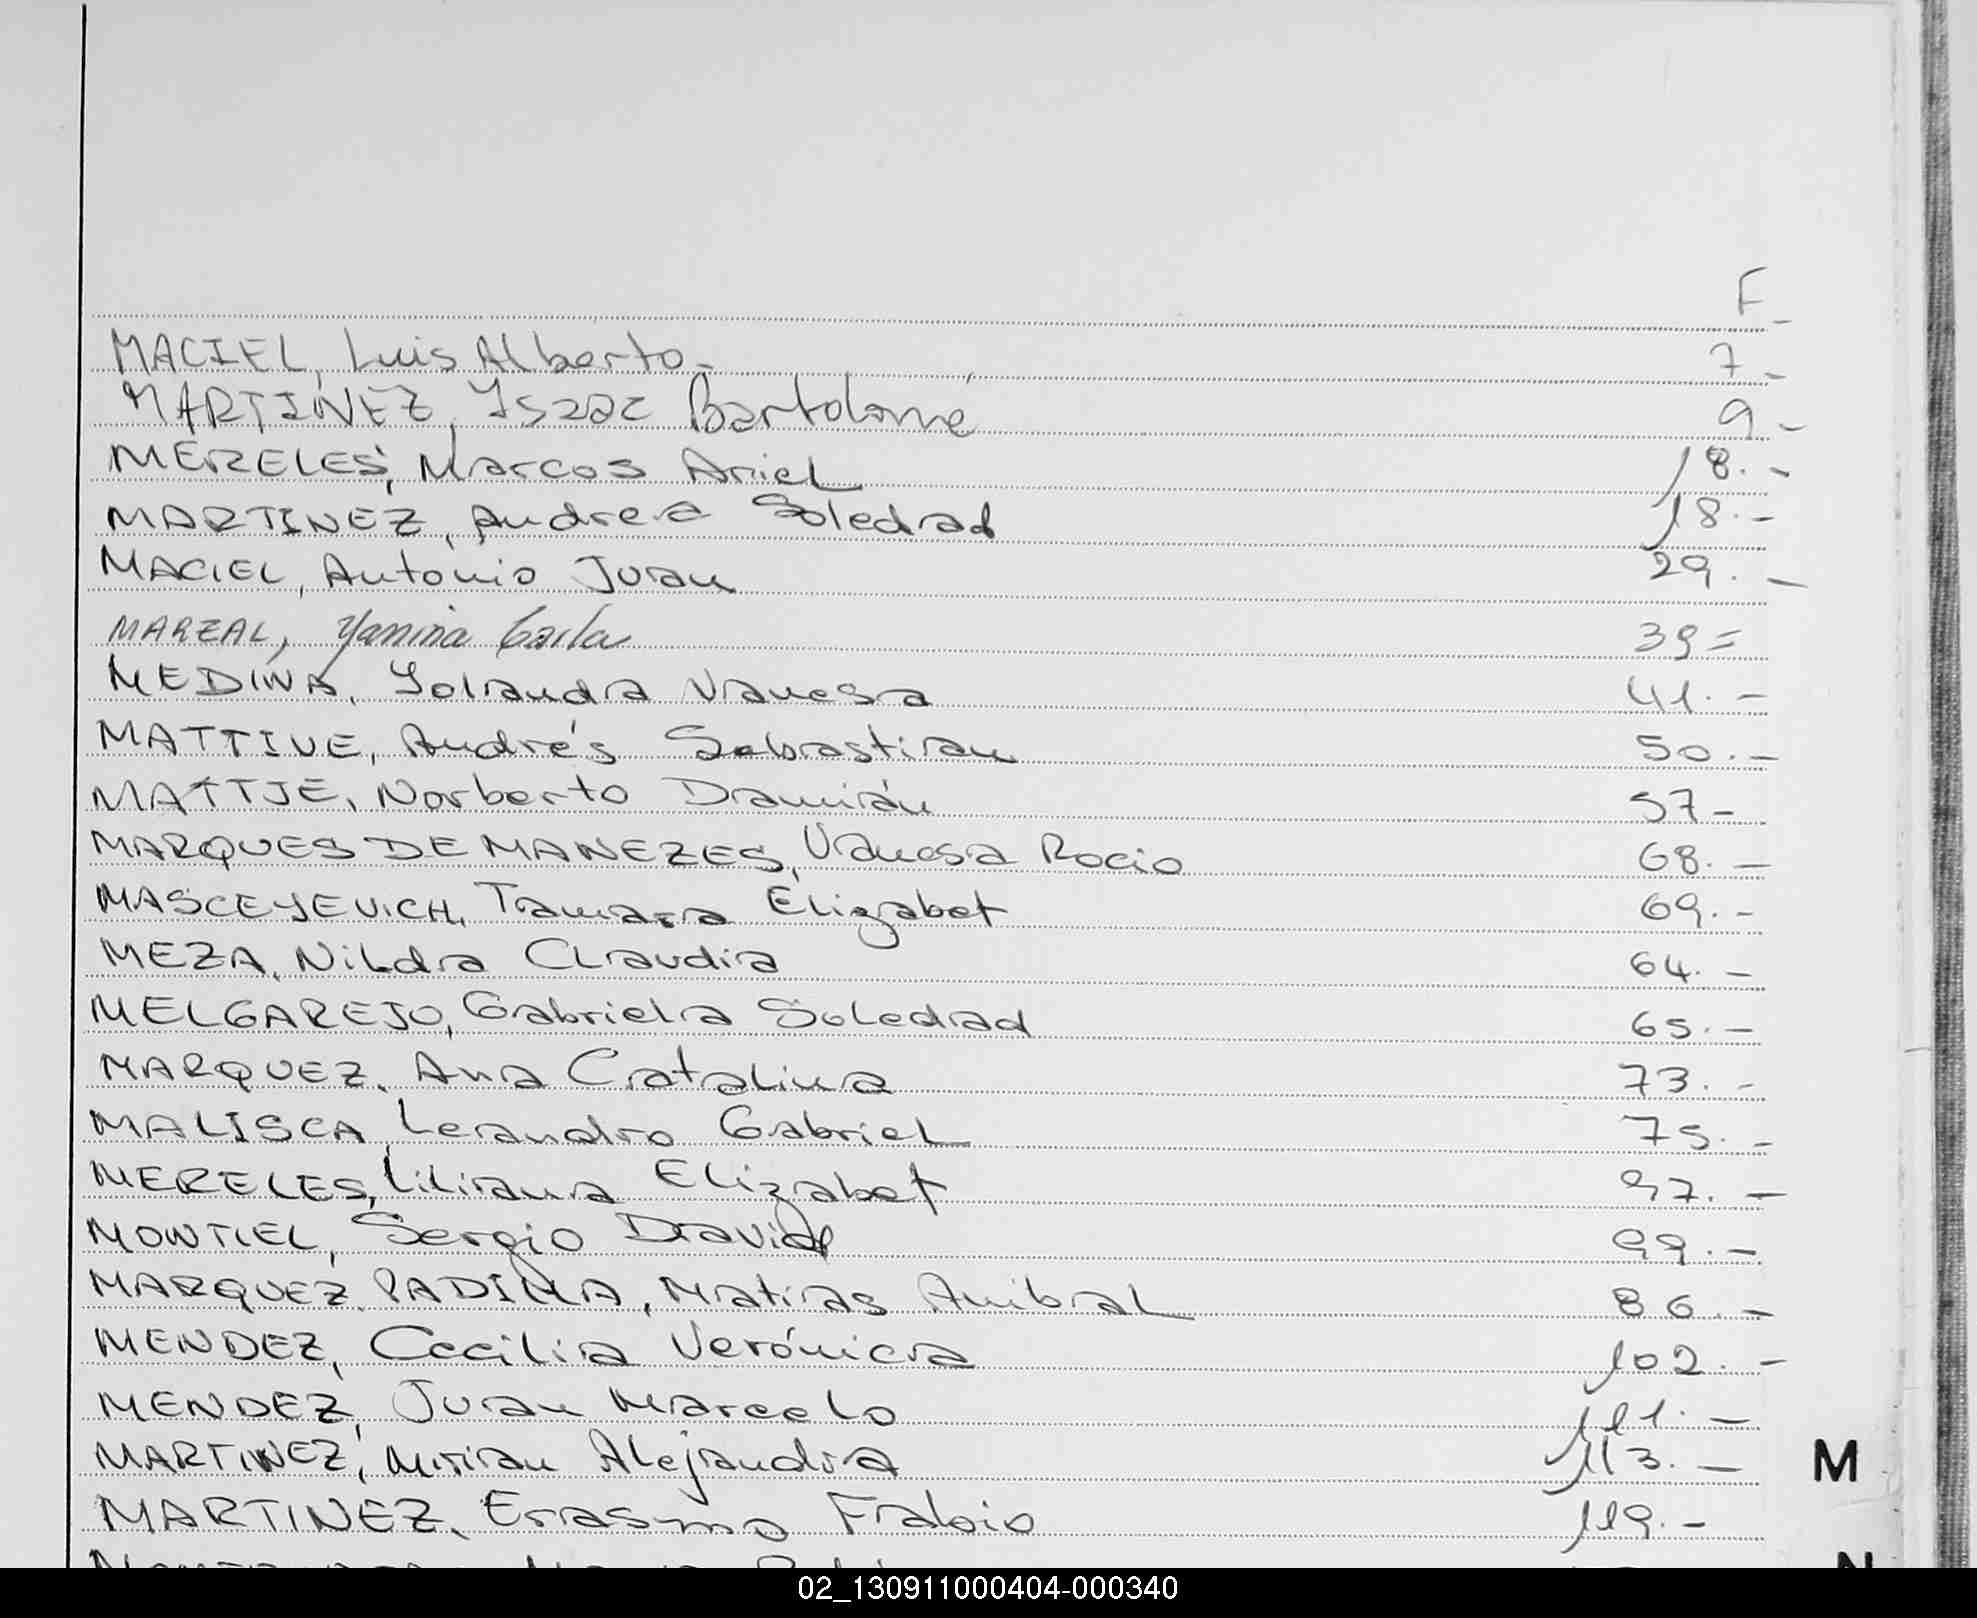 F_
MACIEL, Luis Alberto._ 7_
MARTINEZ, Isaac Bartolomé 9_
MERELES, Marcos Ariel 18._
MARTINEZ, Andrea Soledad 18._
MACIEL, Antonio Juan 29._
MARZAL, Yanina Carla 39=
MEDINA, Yolanda Vanesa 41._
MATTIVE, Andrés Sebastian 50._
MATTJE, Norberto Damián 57_
MARQUES DE MANEZES, Vanesa Rocio 68._
MASCEYEVICH, Tamara Elizabet 69._
MEZA, Nilda Claudia 64._
MELGAREJO, Gabriela Soledad 65._
MARQUEZ, Ana Catalina 73._
MALISCA, Leandro Gabriel 75._
MERELES, Liliana Elizabet 97._
MONTIEL, Sergio David 99._
MARQUEZ PADILHA, Matias Anibal 86._
MENDEZ, Cecilia Verónica 102._
MENDEZ, Juan Marcelo 111._
MARTINEZ, Mirian Alejandra 113._ M
MARTINEZ, Erasmo Fabio 119._
N
02_130911000404-000340